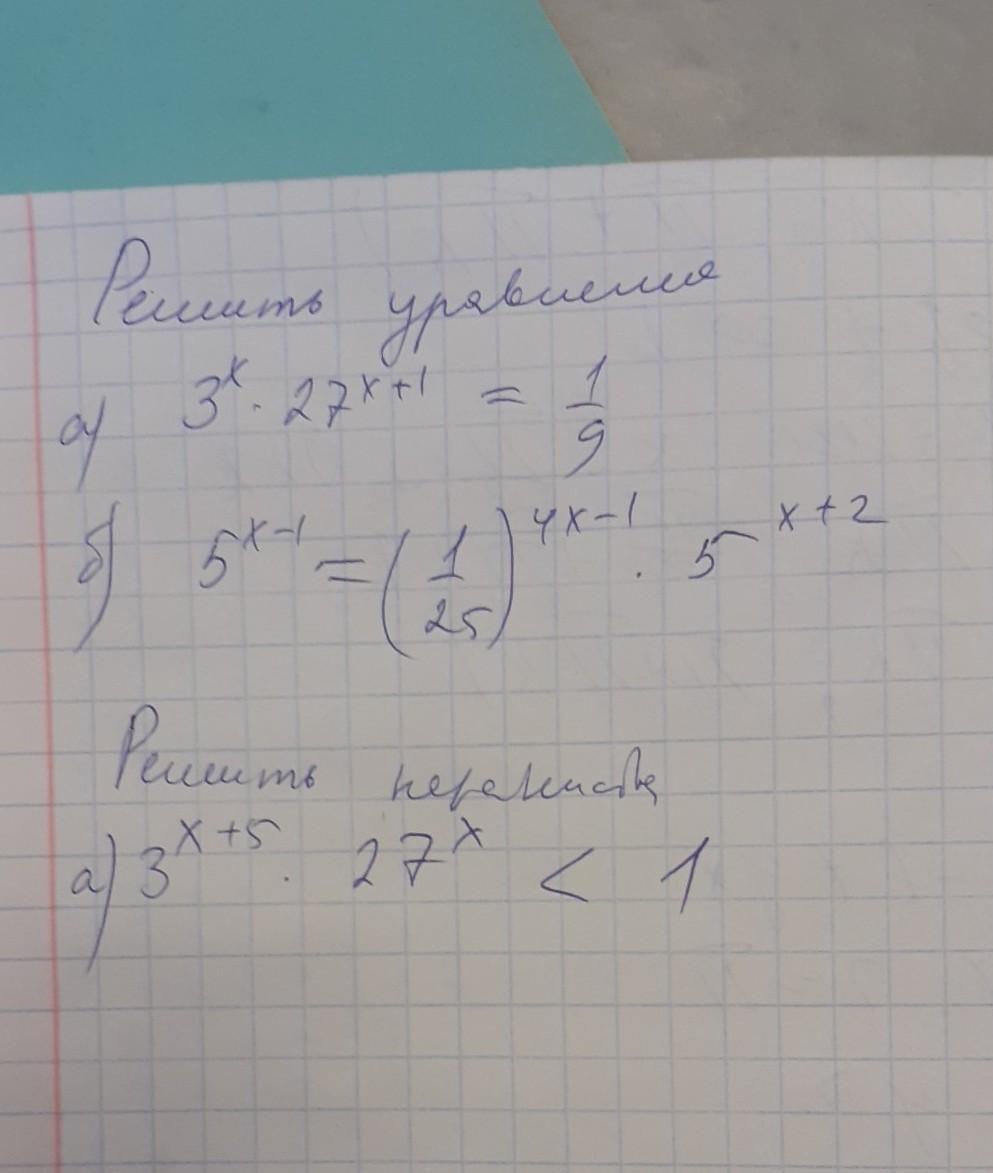 Решить уравнения
а) 3^x · 27^{x+1} = 1/9
б) 5^{x-1} = (1/25)^{4x-1} · 5^{x+2}
Решить неравенства
а) 3^{x+5} · 27^x < 1